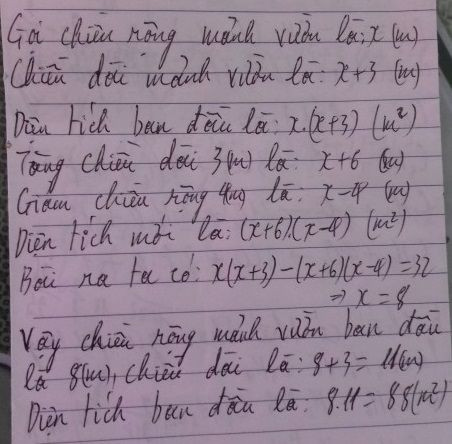 Gọi chiều rộng mảnh vườn là: x (m)
Chiều dài mảnh vườn là: x+3 (m)
Diện tích ban đầu là: x.(x+3) (m²)
Tăng chiều dài 3(m) là: x+6 (m)
Giảm chiều rộng 4(m) là: x-4 (m)
Diện tích mới là: (x+6)(x-4) (m²)
Bài ra ta có: x(x+3)-(x+6)(x-4)=32
⇒ x=8
Vậy chiều rộng mảnh vườn ban đầu
là 8(m), chiều dài là: 8+3=11(m)
Diện tích ban đầu là: 8.11=88(m²)